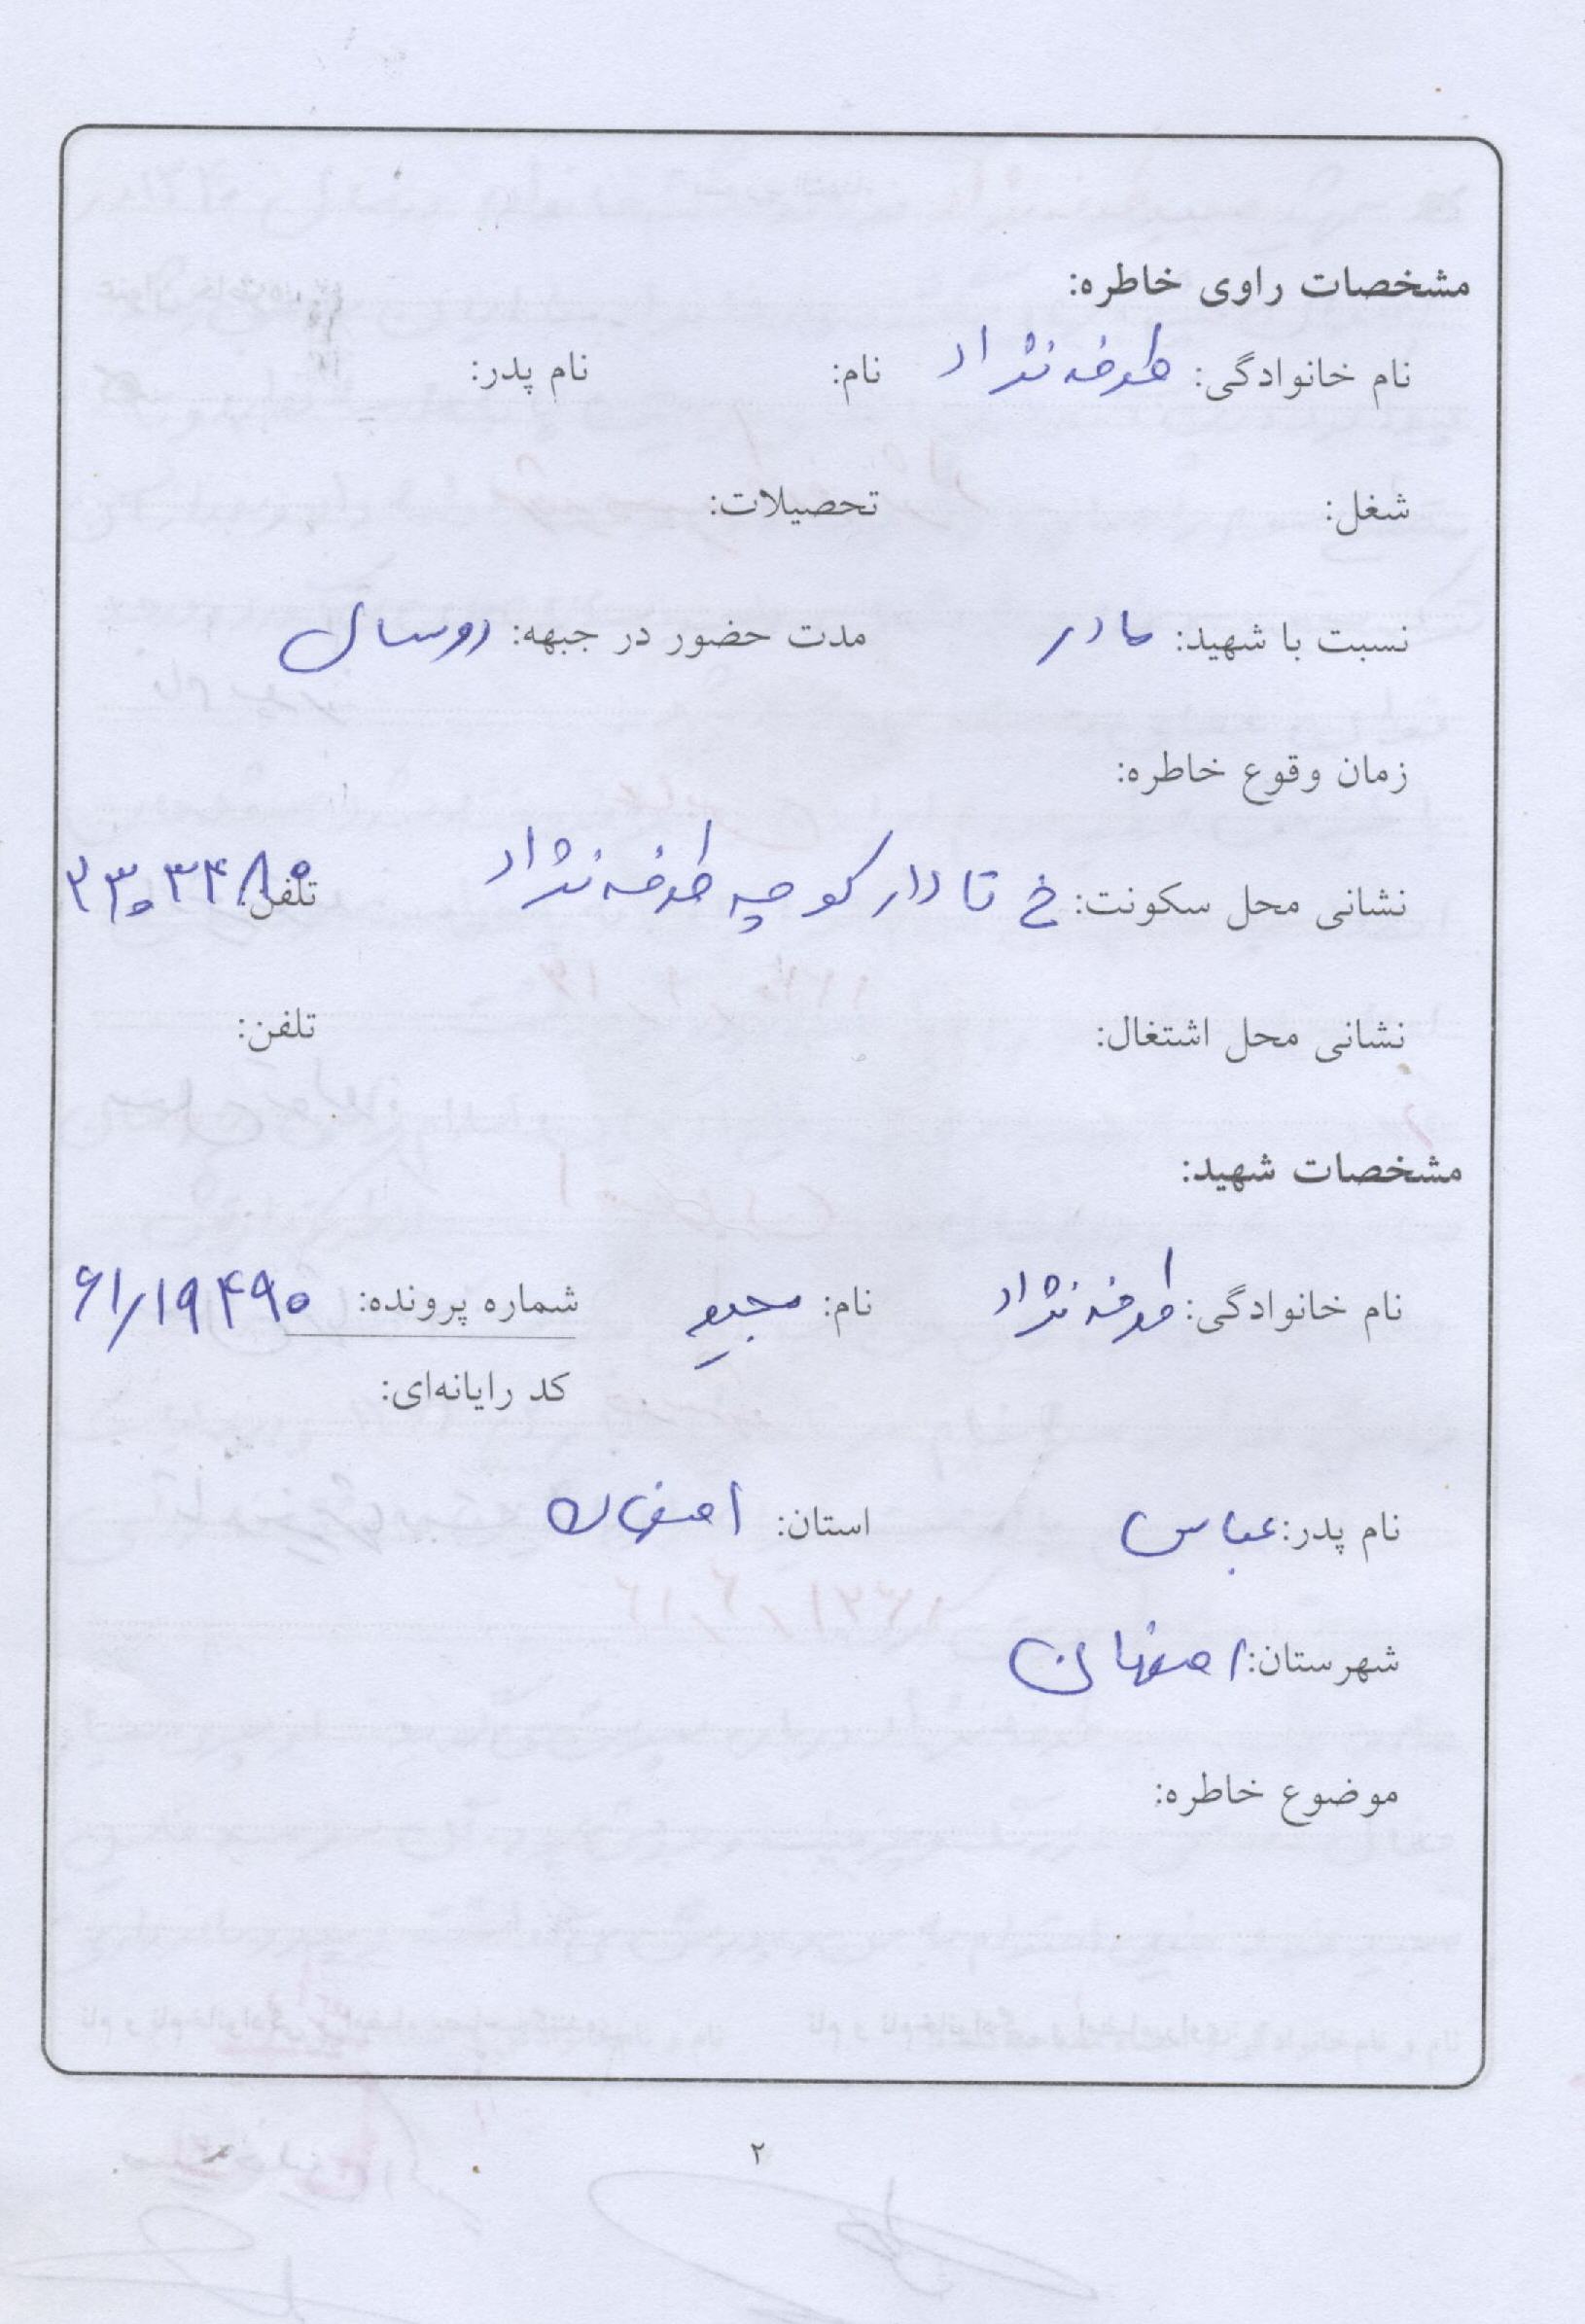 مشخصات راوی خاطره:
نام خانوادگی: طرفه نژاد نام: نام پدر:
شغل: تحصیلات:
نسبت با شهید: مادر مدت حضور در جبهه: دوسال
زمان وقوع خاطره:
نشانی محل سکونت: خ تالار کوچه طرفه نژاد تلفن:
نشانی محل اشتغال: تلفن:
مشخصات شهید:
نام خانوادگی: طرفه نژاد نام: مجید شماره پرونده: ۶۱/۱۹۴۹۰
کد رایانه‌ای:
نام پدر: عباس استان: اصفهان
شهرستان: اصفهان
موضوع خاطره:
۲